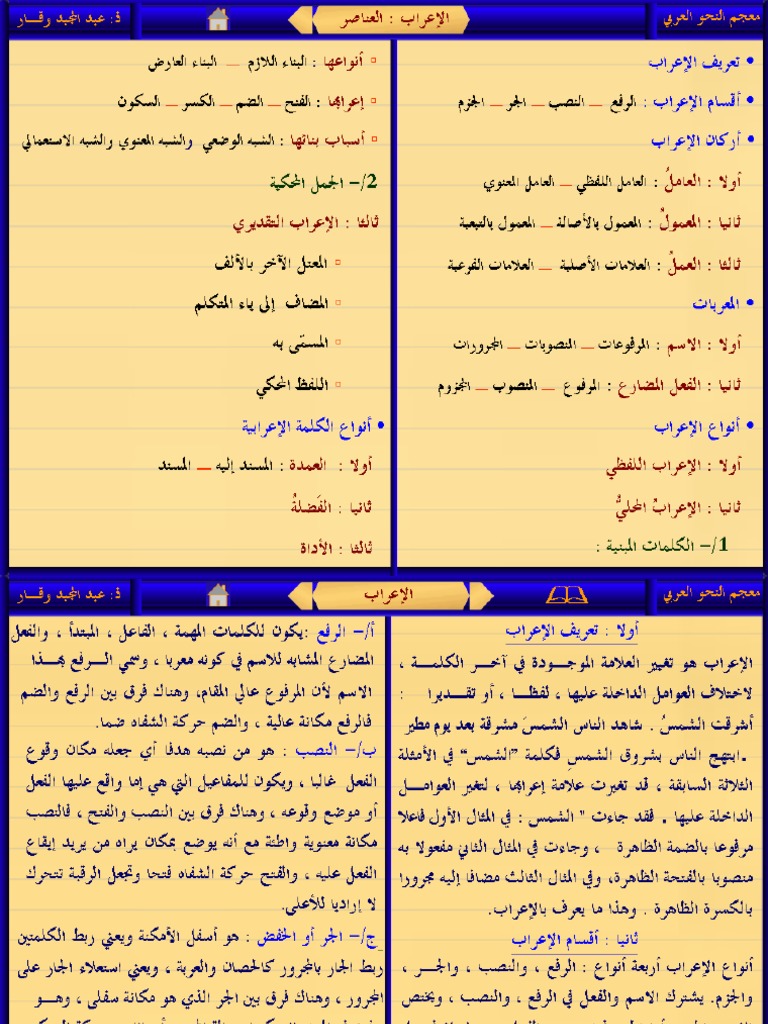 معجم النحو العربي
الإعراب : العناصر
ذ: عبد المجيد وقــار
• تعريف الإعراب
• أقسام الإعراب : الرفع – النصب – الجر – الجزم
• أركان الإعراب
أولا : العاملُ : العامل اللفظي – العامل المعنوي
ثانيا : المعمولُ : المعمول بالأصالة – المعمول بالتبعية
ثالثا : العملُ : العلامات الأصلية – العلامات الفرعية
• المعربات
أولا : الاسم : المرفوعات – المنصوبات – المجرورات
ثانيا : الفعل المضارع : المرفوع – المنصوب – المجزوم
• أنواع الإعراب
أولا : الإعراب اللفظي
ثانيا : الإعرابُ المحليُّ
1/- الكلمات المبنية :
▫ أنواعها : البناء اللازم – البناء العارض
▫ إعرابها : الفتح – الضم – الكسر – السكون
▫ أسباب بنائها : الشبه الوضعي والشبه المعنوي والشبه الاستعمالي
2/- الجمل المحكية
ثالثا : الإعراب التقديري
▫ المعتل الآخر بالألف
▫ المضاف إلى ياء المتكلم
▫ المسمّى به
▫ اللفظ المحكي
• أنواع الكلمة الإعرابية
أولا : العمدة : المسند إليه – المسند
ثانيا : الفَضلةُ
ثالثا : الأداة
معجم النحو العربي
الإعراب
ذ: عبد المجيد وقــار
أولا : تعريف الإعراب
الإعراب هو تغيير العلامة الموجـودة في آخـر الكلمـة ،
لاختلاف العوامل الداخلة عليها ، لفظـا ، أو تقـديرا :
أشرقت الشمسُ . شاهد الناس الشمسَ مشرقة بعد يوم مطير
.ابتهج الناس بشروق الشمسِ فكلمة "الشمس" في الأمثلة
الثلاثة السابقة ، قد تغيرت علامة إعرابها ، لتغير العوامـل
الداخلة عليها . فقد جاءت " الشمس : في المثال الأول فاعلا
مرفوعا بالضمة الظاهرة ، وجاءت في المثال الثاني مفعولا به
منصوبا بالفتحة الظاهرة، وفي المثال الثالث مضافا إليه مجرورا
بالكسرة الظاهرة . وهذا ما يعرف بالإعراب.
ثانيا : أقسام الإعراب
أنواع الإعراب أربعة أنواع : الرفع ، والنصب ، والجـر ،
والجزم. يشترك الاسم والفعل في الرفع ، والنصب ، ويختص
أ/- الرفع :يكون للكلمات المهمة ، الفاعل ، المبتدأ ، والفعل
المضارع المشابه للاسم في كونه معربا ، وسمي الـرفع بهـذا
الاسم لأن المرفوع عالي المقام، وهناك فرق بين الرفع والضم
فالرفع مكانة عالية ، والضم حركة الشفاه ضما.
ب/- النصب : هو من نصبه هدفا أي جعله مكان وقوع
الفعل غالبا ، ويكون للمفاعيل التي هي إما واقع عليها الفعل
أو موضع وقوعه ، وهناك فرق بين النصب والفتح ، فالنصب
مكانة معنوية واطئة مع أنه يوضع بمكان يراه من يريد إيقاع
الفعل عليه ، والفتح حركة الشفاه فتحا وتجعل الرقبة تتحرك
لا إراديا للأعلى.
ج/- الجر أو الخفض : هو أسفل الأمكنة ويعني ربط الكلمتين
ربط الجار بالمجرور كالحصان والعربة ، ويعني استعلاء الجار على
المجرور ، وهناك فرق بين الجر الذي هو مكانة سفلى ، وهـو